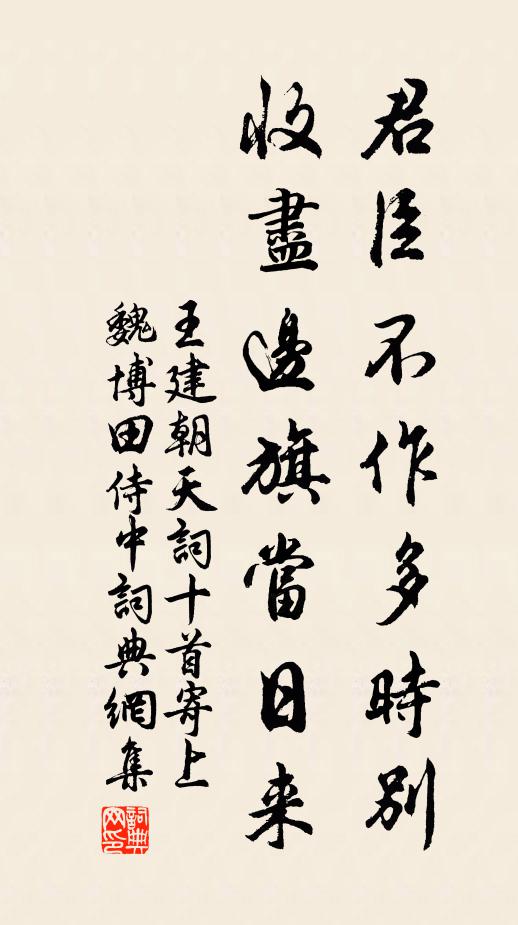 君臣不作多時別
收盡邊旗當日来
王建朝天詞十首寄上
魏博田侍中詞典網集
詞典网印